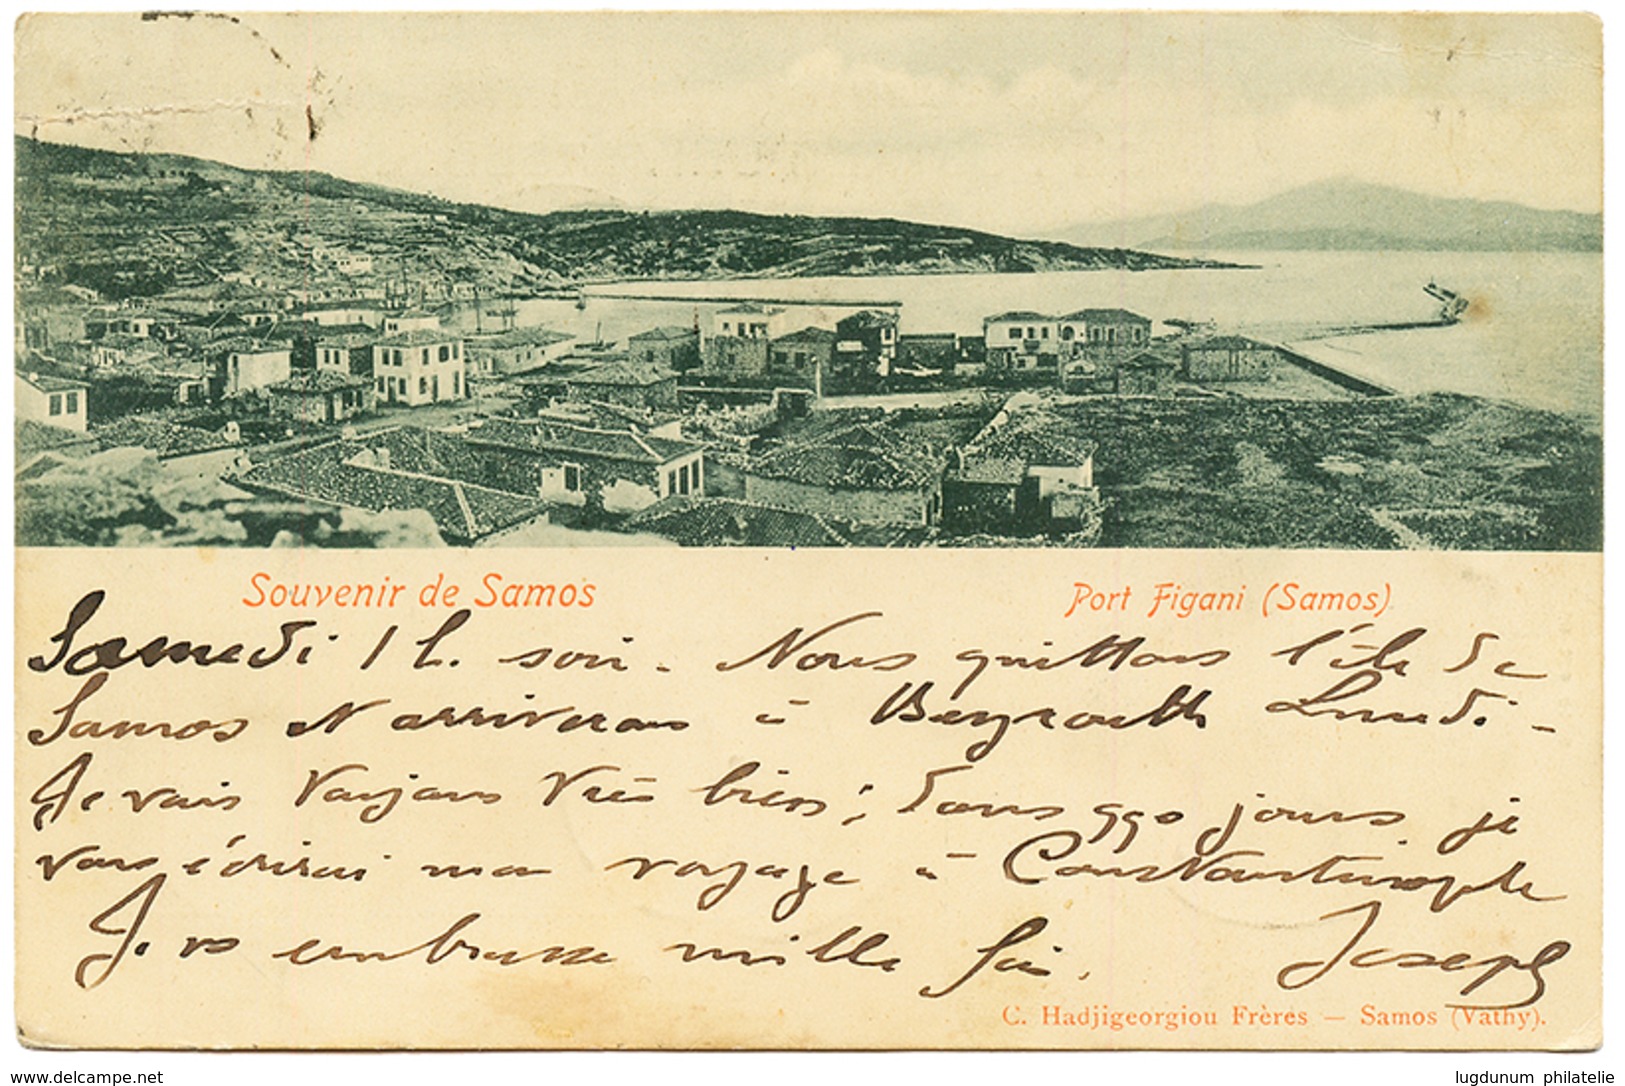 Souvenir de Samos
Port Figani (Samos)
Samedi 1 h. soir. Nous quittons l'île de
Samos et arriverons à Beyrouth Lundi -
Je vais toujours très bien; dans qqs jours je
vous écrirai mon voyage à Constantinople
Je vs embrasse mille fois. Joseph
C. Hadjigeorgiou Frères — Samos (Vathy).
www.delcampe.net
lugdunum philatelie